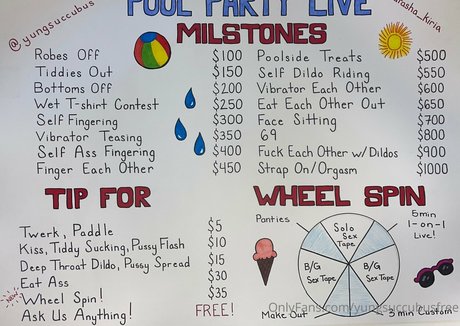 POOL PARTY LIVE
@yungsuccubus
MILSTONES
Robes Off $100
Tiddies Out $150
Bottoms Off $200
Wet T-shirt Contest $250
Self Fingering $300
Vibrator Teasing $350
Self Ass Fingering $400
Finger Each Other $450
Poolside Treats $500
Self Dildo Riding $550
Vibrator Each Other $600
Eat Each Other Out $650
Face Sitting $700
69 $800
Fuck Each Other w/ Dildos $900
Strap On/Orgasm $1000
TIP FOR
Twerk, Paddle $5
Kiss, Tiddy Sucking, Pussy Flash $10
Deep Throat Dildo, Pussy Spread $15
Eat Ass $30
Wheel Spin! $35
Ask Us Anything! FREE!
WHEEL SPIN
Panties
Solo Sex Tape
5min 1-on-1 Live!
B/G Sex Tape
B/G Sex Tape
Make Out
5 min Custom
OnlyFans.com/yungsuccubusfree